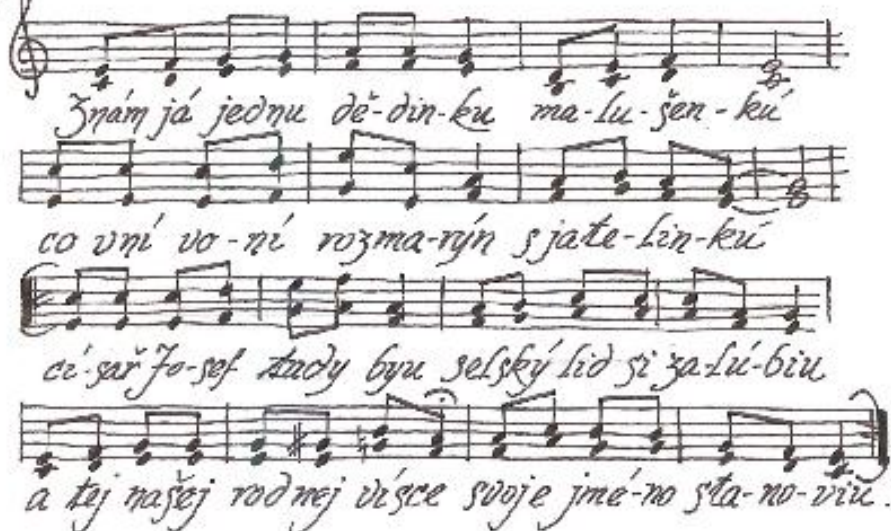 Znám já jednu dě-din-ku ma-lu-šen-kú
co vní vo-ní rozma-rýn s jate-lin-kú
cí-sař Jo-sef tady byu selský lid si za-lú-biu
a tej našej rodnej vísce svoje jmé-no sta-no-viu.